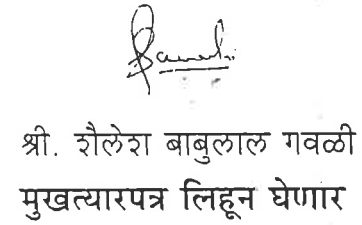 श्री. शैलेश बाबुलाल गवळी
मुखत्यारपत्र लिहून घेणार